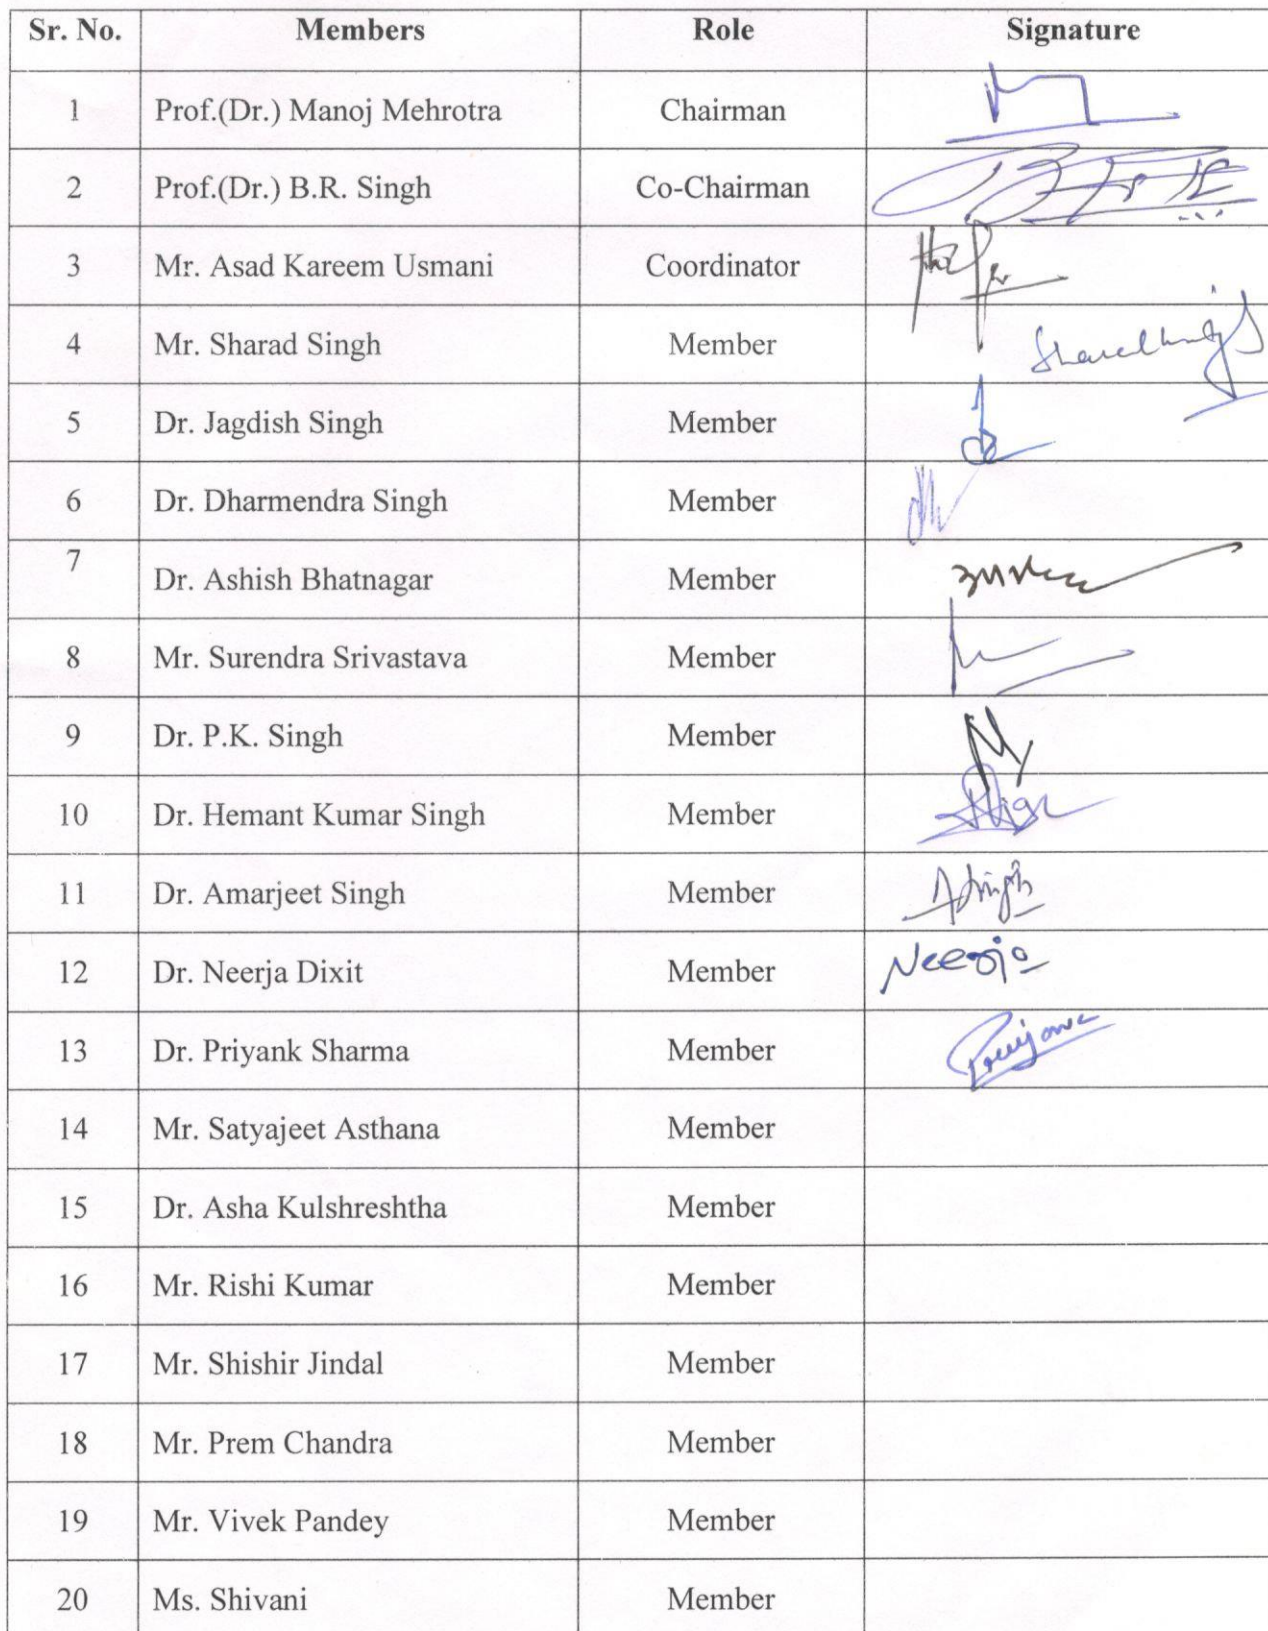 Sr. No. Members Role Signature
1 Prof.(Dr.) Manoj Mehrotra Chairman
2 Prof.(Dr.) B.R. Singh Co-Chairman
3 Mr. Asad Kareem Usmani Coordinator
4 Mr. Sharad Singh Member
5 Dr. Jagdish Singh Member
6 Dr. Dharmendra Singh Member
7 Dr. Ashish Bhatnagar Member
8 Mr. Surendra Srivastava Member
9 Dr. P.K. Singh Member
10 Dr. Hemant Kumar Singh Member
11 Dr. Amarjeet Singh Member ASingh
12 Dr. Neerja Dixit Member Neerja
13 Dr. Priyank Sharma Member
14 Mr. Satyajeet Asthana Member
15 Dr. Asha Kulshreshtha Member
16 Mr. Rishi Kumar Member
17 Mr. Shishir Jindal Member
18 Mr. Prem Chandra Member
19 Mr. Vivek Pandey Member
20 Ms. Shivani Member